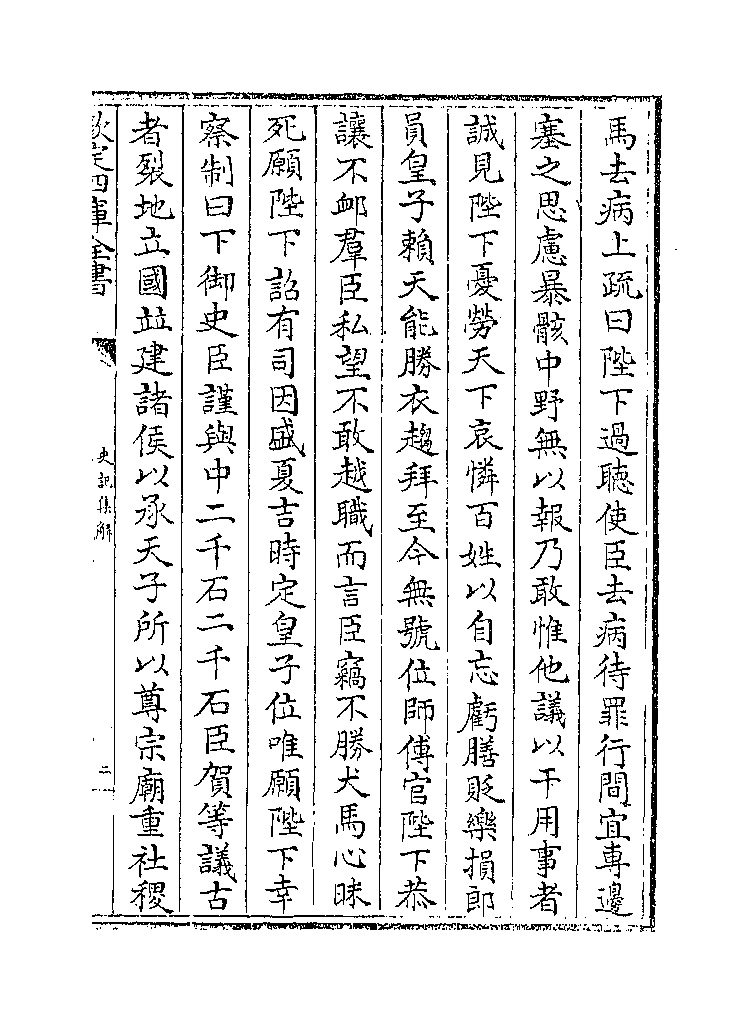 馬去病上疏曰陛下過聽使臣去病待罪行間宜專邊
塞之思慮暴骸中野無以報乃敢惟他議以干用事者
誠見陛下憂勞天下哀憐百姓以自忘虧膳貶樂損郎
員皇子賴天能勝衣趨拜至今無號位師傅官陛下恭
讓不卹羣臣私望不敢越職而言臣竊不勝犬馬心昧
死願陛下詔有司因盛夏吉時定皇子位唯願陛下幸
察制曰下御史臣謹與中二千石二千石臣賀等議古
者裂地立國並建諸侯以承天子所以尊宗廟重社稷
欽定四庫全書
史記集解
二